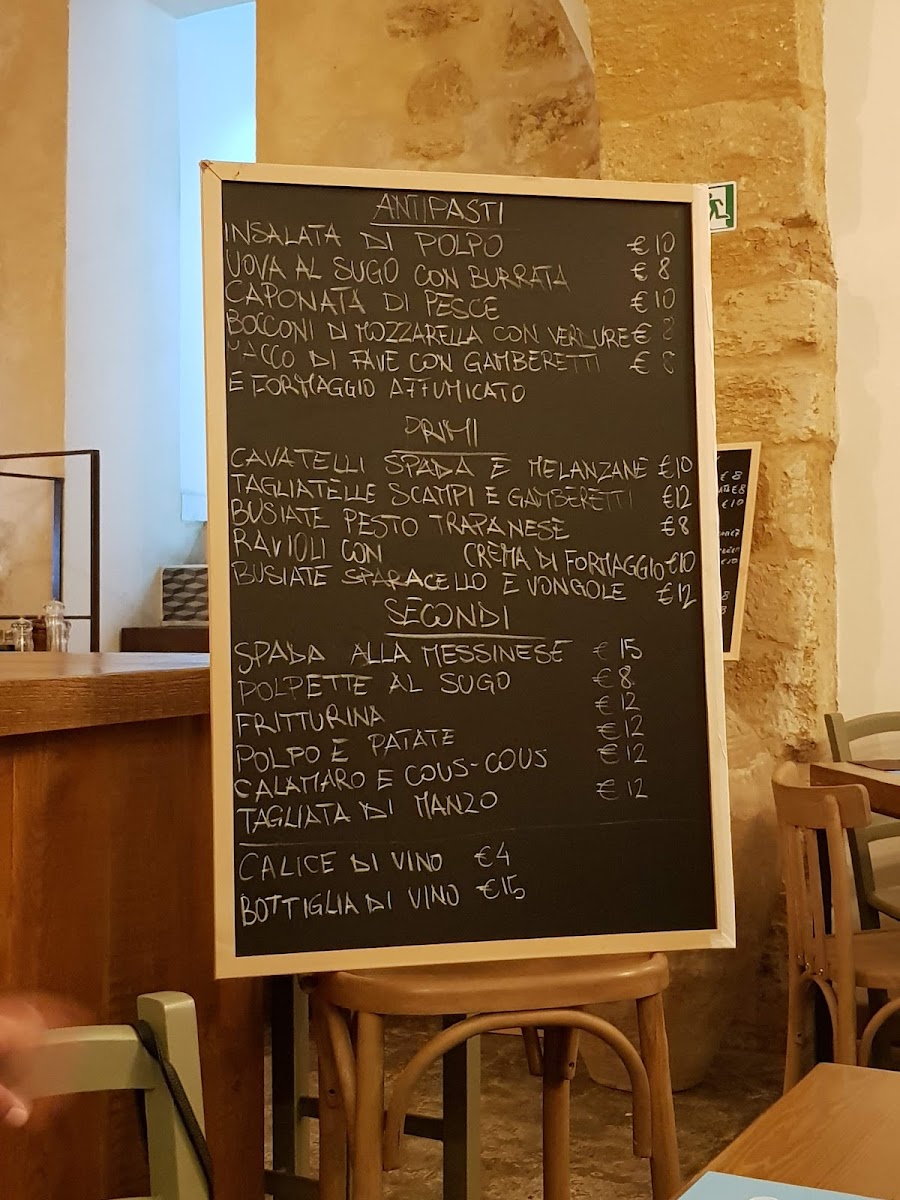 ANTIPASTI
INSALATA DI POLPO €10
UOVA AL SUGO CON BURRATA €8
CAPONATA DI PESCE €10
BOCCONI DI MOZZARELLA CON VERDURE € 8
MACCO DI FAVE CON GAMBERETTI € 8
E FORMAGGIO AFFUMICATO
PRIMI
CAVATELLI SPADA E MELANZANE €10
TAGLIATELLE SCAMPI E GAMBERETTI €12
BUSIATE PESTO TRAPANESE €8
RAVIOLI CON CREMA DI FORMAGGIO €10
BUSIATE SPARACELLO E VONGOLE €12
SECONDI
SPADA ALLA MESSINESE €15
POLPETTE AL SUGO €8
FRITTURINA €12
POLPO E PATATE €12
CALAMARO E COUS-COUS €12
TAGLIATA DI MANZO €12
CALICE DI VINO €4
BOTTIGLIA DI VINO €15
€8
€8
€10